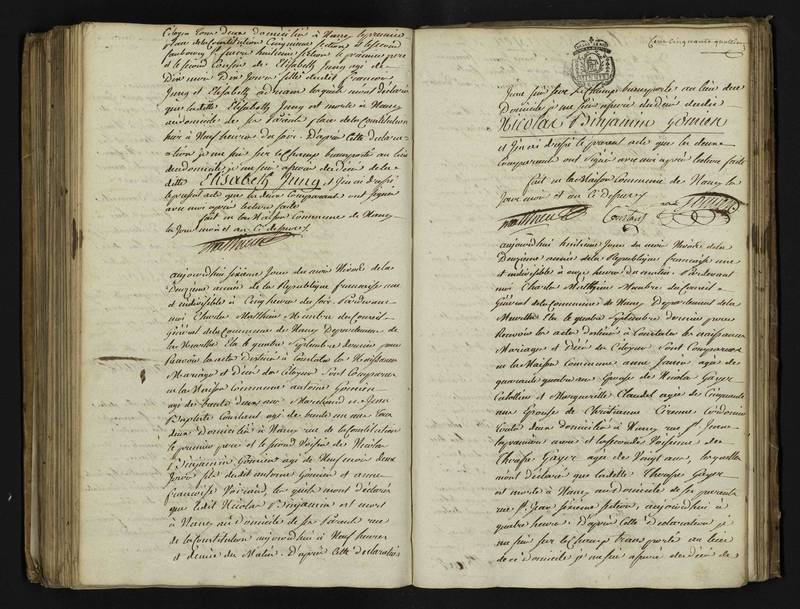 Citoyen tous deux domiciliés à Nancy le premier
place de la Constitution Cinquieme Section et le second
faubourg St pierre huitieme Section le premier pere
et le second Cousin de Elisabeth Jung agé de
Dix mois Dix Jours fille dudit francois
Jung et Elisabeth lesquels m'ont déclaré
que ladite Elisabeth Jung est morte à Nancy
au domicile de ses Parents place de la Constitution
hier à Neuf heures du soir. D'après Cette déclara-
-tion je me suis sur le Champ transporté au lieu
dudit domicile je me suis assuré du décès de la
ditte Elisabeth Jung et j'en ai dressé
le present acte que les deux Comparants ont signé
avec moi après lecture faite
fait en la Maison Commune de Nancy
les Jour mois et an Ci dessus
Matthieu
aujourd'hui sixieme Jour du mois Nivose de la
Deuxieme année de la Republique francaise une
et indivisible à Cinq heures du soir. Pardevant
moi Charles Matthieu Membre du Conseil
Général de la Commune de Nancy Departement de
la Meurthe Elu le quatre Septembre dernier pour
Recevoir les actes Destinés à Constater les Naissances
Mariages et Décès des Citoyens Sont Comparus
en la Maison Commune antoine Gomien
agé de trente deux ans Marchand et Jean
Baptiste Coutant agé de trente un ans tous
deux Domiciliés à Nancy rue de la Constitution
le premier pere et le second Voisin de Nicolas
Binjamin Gomien agé de Neuf mois deux
Jours fils dudit antoine Gomien et anne
francoise Voirand, lesquels m'ont déclaré
que ledit Nicolas Binjamin est mort
à Nancy au domicile de ses Parents rue
de la Constitution aujourd'hui à Neuf heures
et demie du Matin. D'après Cette déclaration
Cent cinquante quatrieme
Je me suis sur le Champ transporté au lieu dudit
Domicile je me suis assuré du décès dudit
Nicolas Binjamin Gomien
et j'en ai dressé le present acte que les deux
Comparants ont Signé avec moi après lecture faite
fait en la Maison Commune de Nancy les
Jour mois et an Ci dessus
Matthieu Coutant Gomien
aujourd'hui huitieme Jour du mois Nivose de la
Deuxieme année de la Republique francaise une
et indivisible à onze heures du matin. Pardevant
moi Charles Matthieu Membre du Conseil
Général de la Commune de Nancy Departement de la
Meurthe Elu le quatre Septembre dernier pour
Recevoir les actes destinés à Constater les naissances
Mariages et Décès des Citoyens Sont Comparus
en la Maison Commune anne agée de
quarante quatre ans Epouse de Nicolas Gayer
et Margueritte Claudel agée de Cinquante
ans Epouse de Christianne Cordonnier
toutes deux domiciliées à Nancy rue St Jean
la premiere mere et la seconde Voisine de
Therese Gayer agée de Vingt ans, lesquelles
m'ont déclaré que ladite Therese Gayer
est morte à Nancy au domicile de ses parents
rue St Jean Section, aujourd'hui à
quatre heures. D'après Cette Declaration je
me suis sur le Champ transporté au lieu
dudit domicile je me suis assuré du décès de